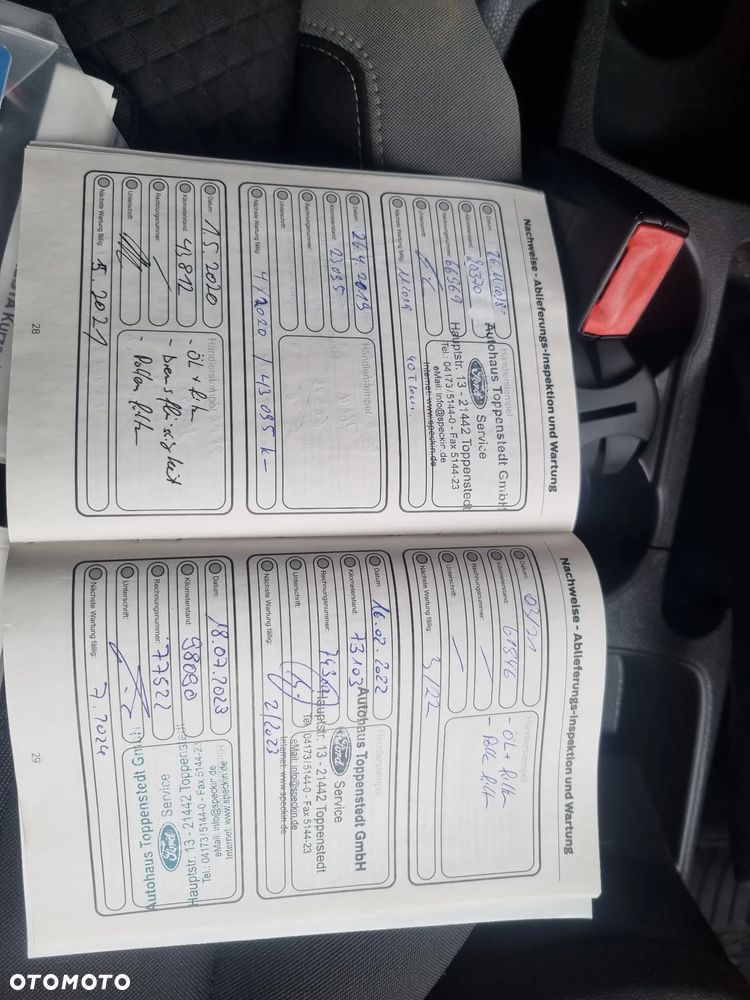 Nachweise - Ablieferungs-Inspektion und Wartung
Datum: 26.11.2018
Kilometerstand: 20370
Rechnungsnummer: 66969
Unterschrift:
Nächste Wartung fällig: 11/2019
Händlerstempel
Autohaus Toppenstedt GmbH
Ford Service
Hauptstr. 13 - 21442 Toppenstedt
Tel.: 04173/5144-0 - Fax 5144-23
eMail: info@speckin.de
Internet: www.speckin.de
Datum: 26.4.2019
Kilometerstand: 23095
Rechnungsnummer:
Unterschrift:
Nächste Wartung fällig: 4/2020 / 43095 k-
Händlerstempel
Datum: 1.5.2020
Kilometerstand: 43812
Rechnungsnummer:
Unterschrift:
Nächste Wartung fällig: 5.2021
Händlerstempel
- ÖL + Filter
- Bremsflüssigkeit
- Pollen Filter
28
Nachweise - Ablieferungs-Inspektion und Wartung
Datum: 03/21
Kilometerstand: 61846
Rechnungsnummer: -
Unterschrift: -
Nächste Wartung fällig: 3/22
Händlerstempel
- ÖL + Filter
- Polle Filter
Datum: 16.02.2022
Kilometerstand: 73103
Rechnungsnummer:
Unterschrift:
Nächste Wartung fällig: 2/2023
Händlerstempel
Autohaus Toppenstedt GmbH
Ford Service
Hauptstr. 13 - 21442 Toppenstedt
Tel.: 04173/5144-0 - Fax 5144-23
eMail: info@speckin.de
Internet: www.speckin.de
Datum: 18.07.2023
Kilometerstand: 98090
Rechnungsnummer: 77522
Unterschrift:
Nächste Wartung fällig: 7.2024
Autohaus Toppenstedt GmbH
Ford Service
Hauptstr. 13 - 21442 Toppenstedt
Tel.: 04173/5144-0 - Fax 5144-23
eMail: info@speckin.de
Internet: www.speckin.de
29
OTOMOTO